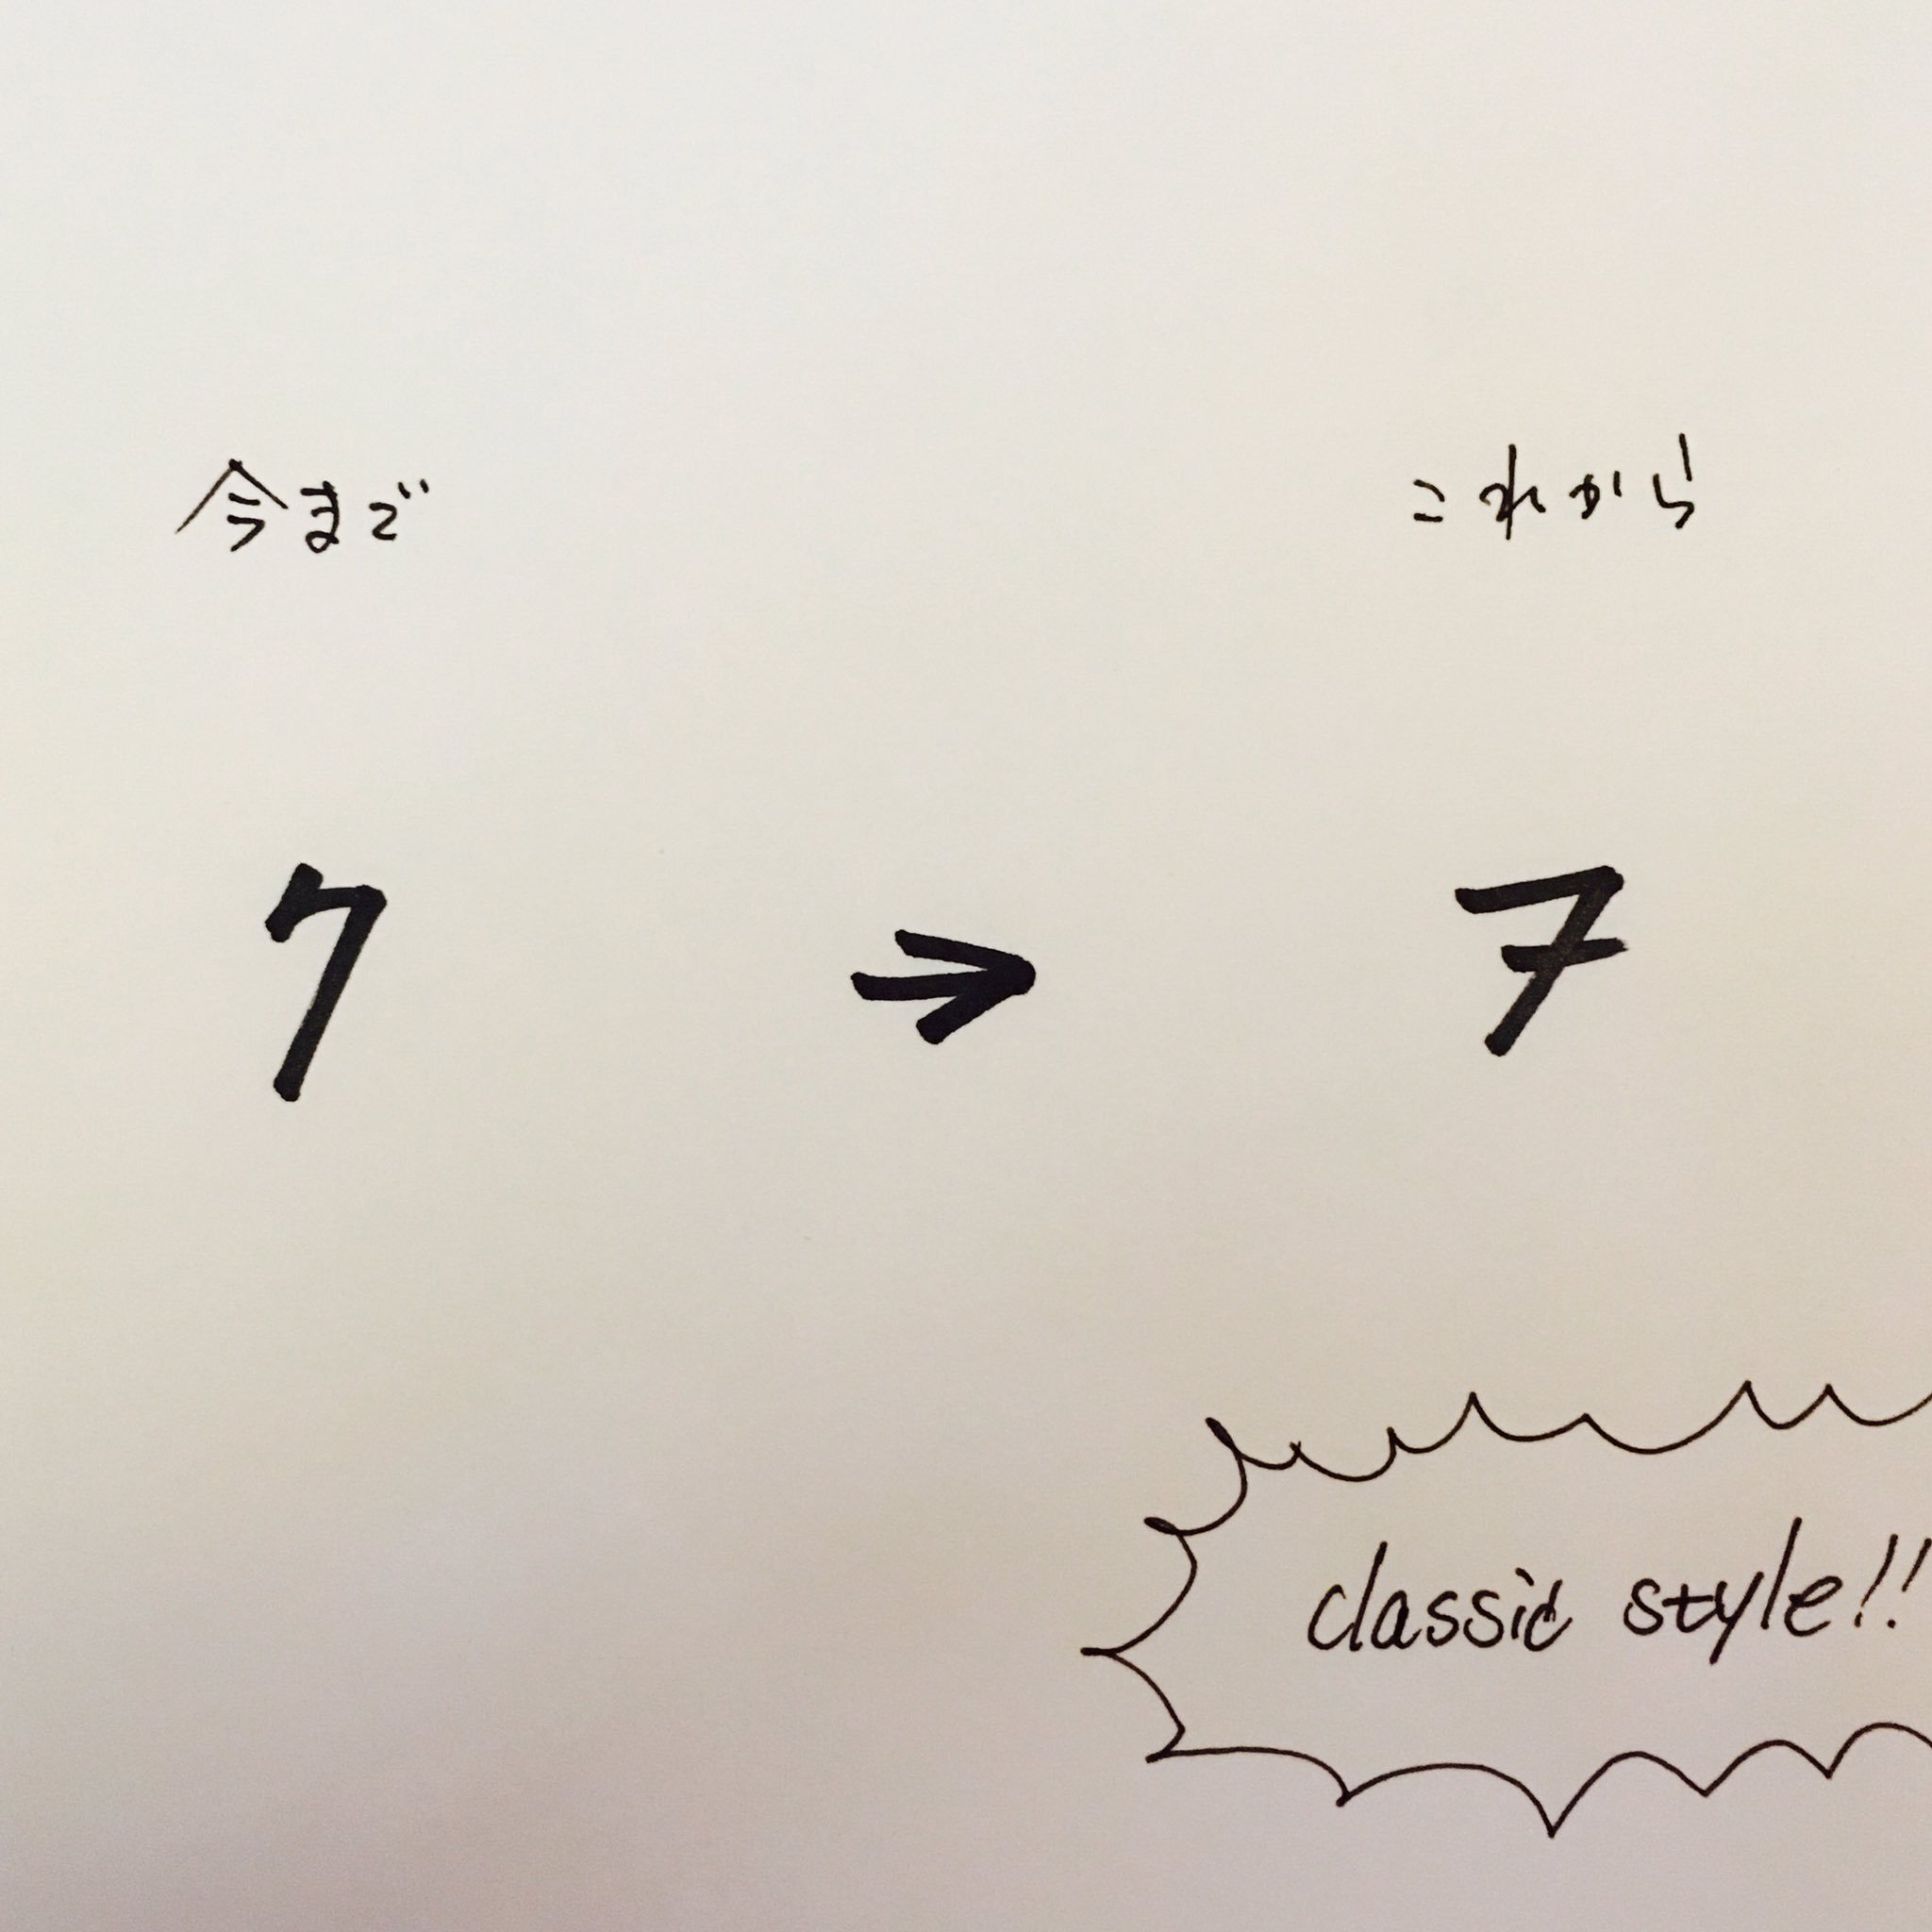 今まで これから
7 → 7
classic style!!